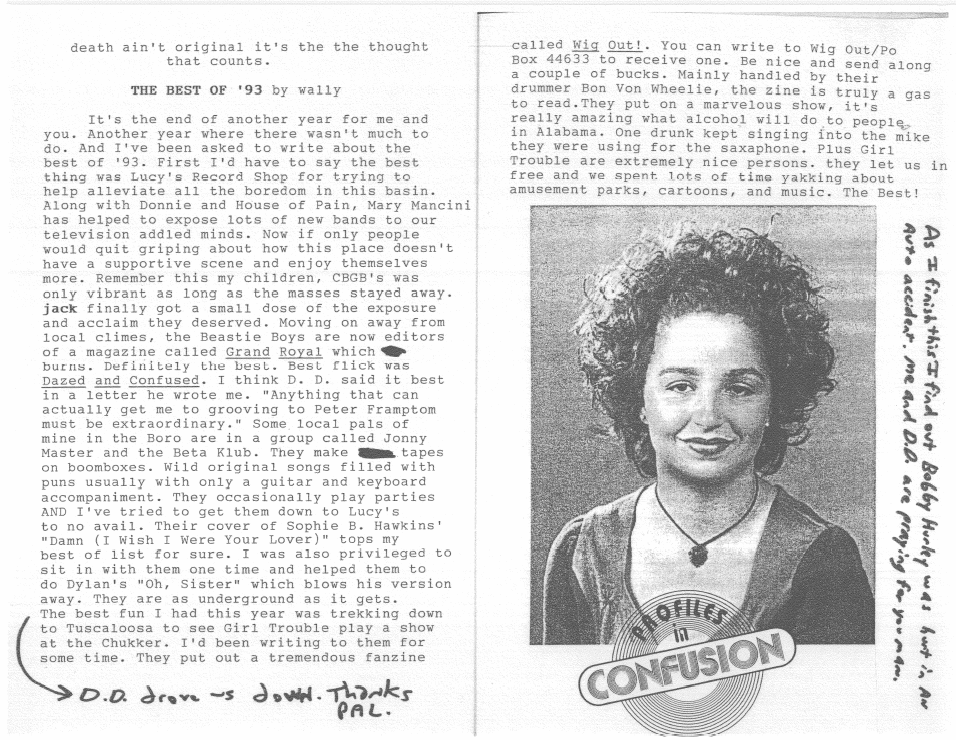 death ain't original it's the the thought
that counts.
THE BEST OF '93 by wally
It's the end of another year for me and
you. Another year where there wasn't much to
do. And I've been asked to write about the
best of '93. First I'd have to say the best
thing was Lucy's Record Shop for trying to
help alleviate all the boredom in this basin.
Along with Donnie and House of Pain, Mary Mancini
has helped to expose lots of new bands to our
television addled minds. Now if only people
would quit griping about how this place doesn't
have a supportive scene and enjoy themselves
more. Remember this my children, CBGB's was
only vibrant as long as the masses stayed away.
jack finally got a small dose of the exposure
and acclaim they deserved. Moving on away from
local climes, the Beastie Boys are now editors
of a magazine called Grand Royal which
burns. Definitely the best. Best flick was
Dazed and Confused. I think D. D. said it best
in a letter he wrote me. "Anything that can
actually get me to grooving to Peter Framptom
must be extraordinary." Some local pals of
mine in the Boro are in a group called Jonny
Master and the Beta Klub. They make tapes
on boomboxes. Wild original songs filled with
puns usually with only a guitar and keyboard
accompaniment. They occasionally play parties
AND I've tried to get them down to Lucy's
to no avail. Their cover of Sophie B. Hawkins'
"Damn (I Wish I Were Your Lover)" tops my
best of list for sure. I was also privileged to
sit in with them one time and helped them to
do Dylan's "Oh, Sister" which blows his version
away. They are as underground as it gets.
The best fun I had this year was trekking down
to Tuscaloosa to see Girl Trouble play a show
at the Chukker. I'd been writing to them for
some time. They put out a tremendous fanzine
D.D. drove us down. Thanks
PAL.
called Wig Out!. You can write to Wig Out/Po
Box 44633 to receive one. Be nice and send along
a couple of bucks. Mainly handled by their
drummer Bon Von Wheelie, the zine is truly a gas
to read.They put on a marvelous show, it's
really amazing what alcohol will do to people
in Alabama. One drunk kept singing into the mike
they were using for the saxaphone. Plus Girl
Trouble are extremely nice persons. they let us in
free and we spent lots of time yakking about
amusement parks, cartoons, and music. The Best!
As I finish this I find out Bobby Hurley was hurt in An
Auto accident. Me and D.D. are praying for you man.
PROFILES
in
CONFUSION